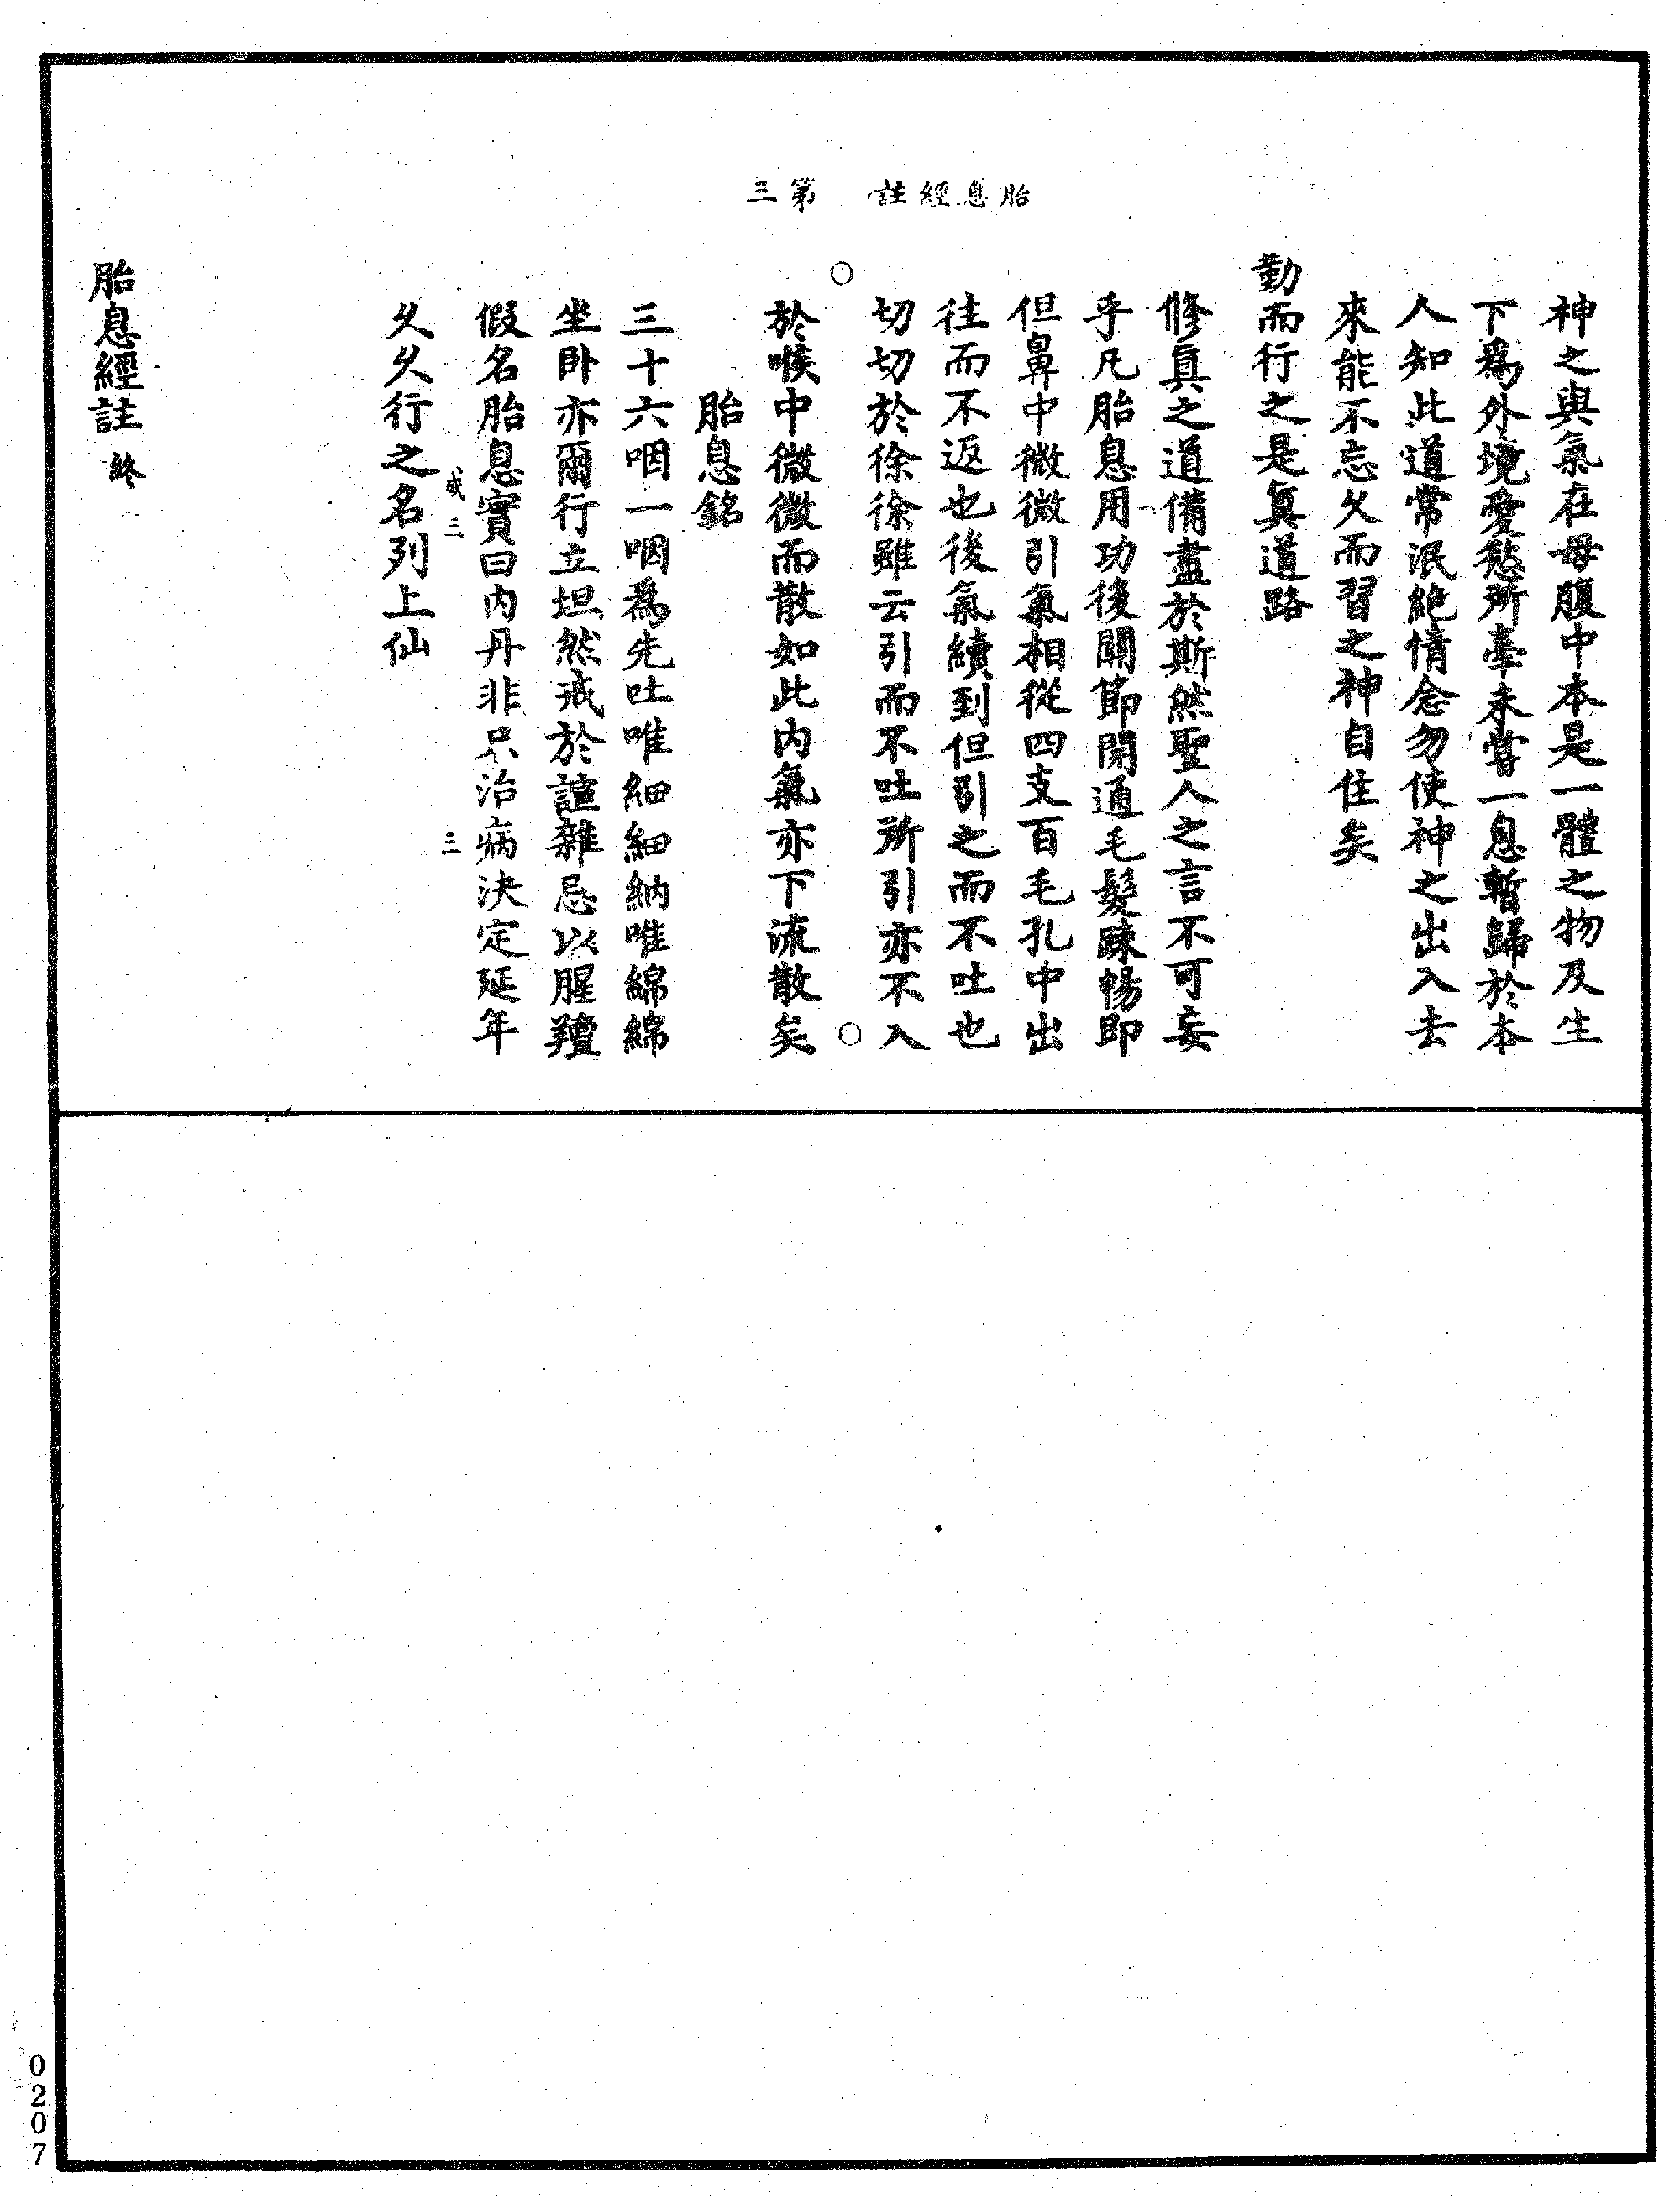 胎息經註　第三
神之與氣在母腹中本是一體之物及生
下爲外境愛慾所牽未嘗一息暫歸於本
人知此道常泯絶情念勿使神之出入去
來能不忘久而習之神自住矣
勤而行之是眞道路
修眞之道備盡於斯然聖人之言不可妄
乎凡胎息用功後關節開通毛髮踈暢即
但鼻中微微引氣相從四支百毛孔中出
往而不返也後氣續到但引之而不吐也
切切於徐徐雖云引而不吐所引亦不入
於喉中微微而散如此内氣亦下流散矣
胎息銘
三十六咽一咽爲先吐唯細細納唯綿綿
坐卧亦爾行立坦然戒於諠雜忌以腥羶
假名胎息實曰内丹非只治病決定延年
三
久久行之名列上仙
胎息經註終
0207